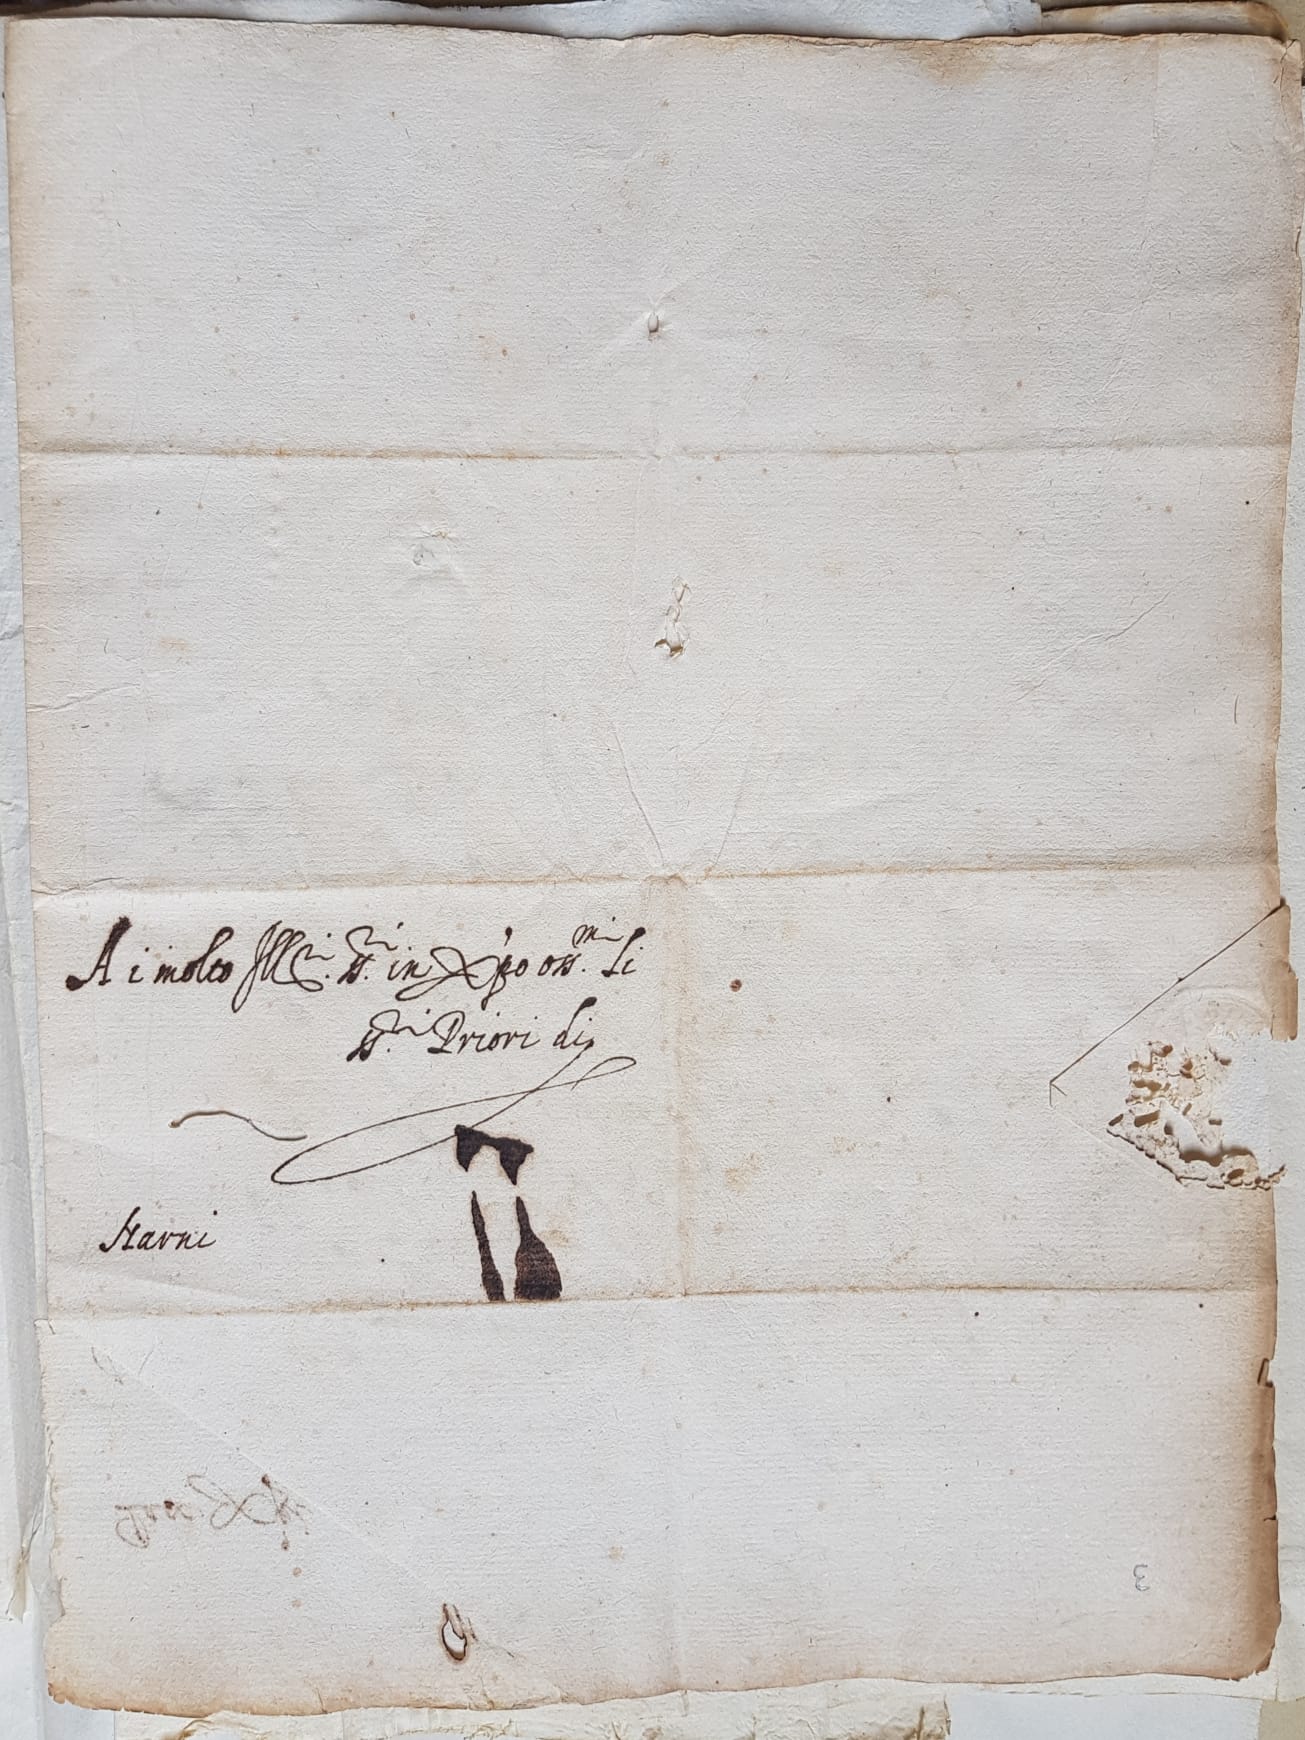 A i molto Ill.ri ss.ri in Xpo oss.mi li
ss.ri Priori di
Narni
3